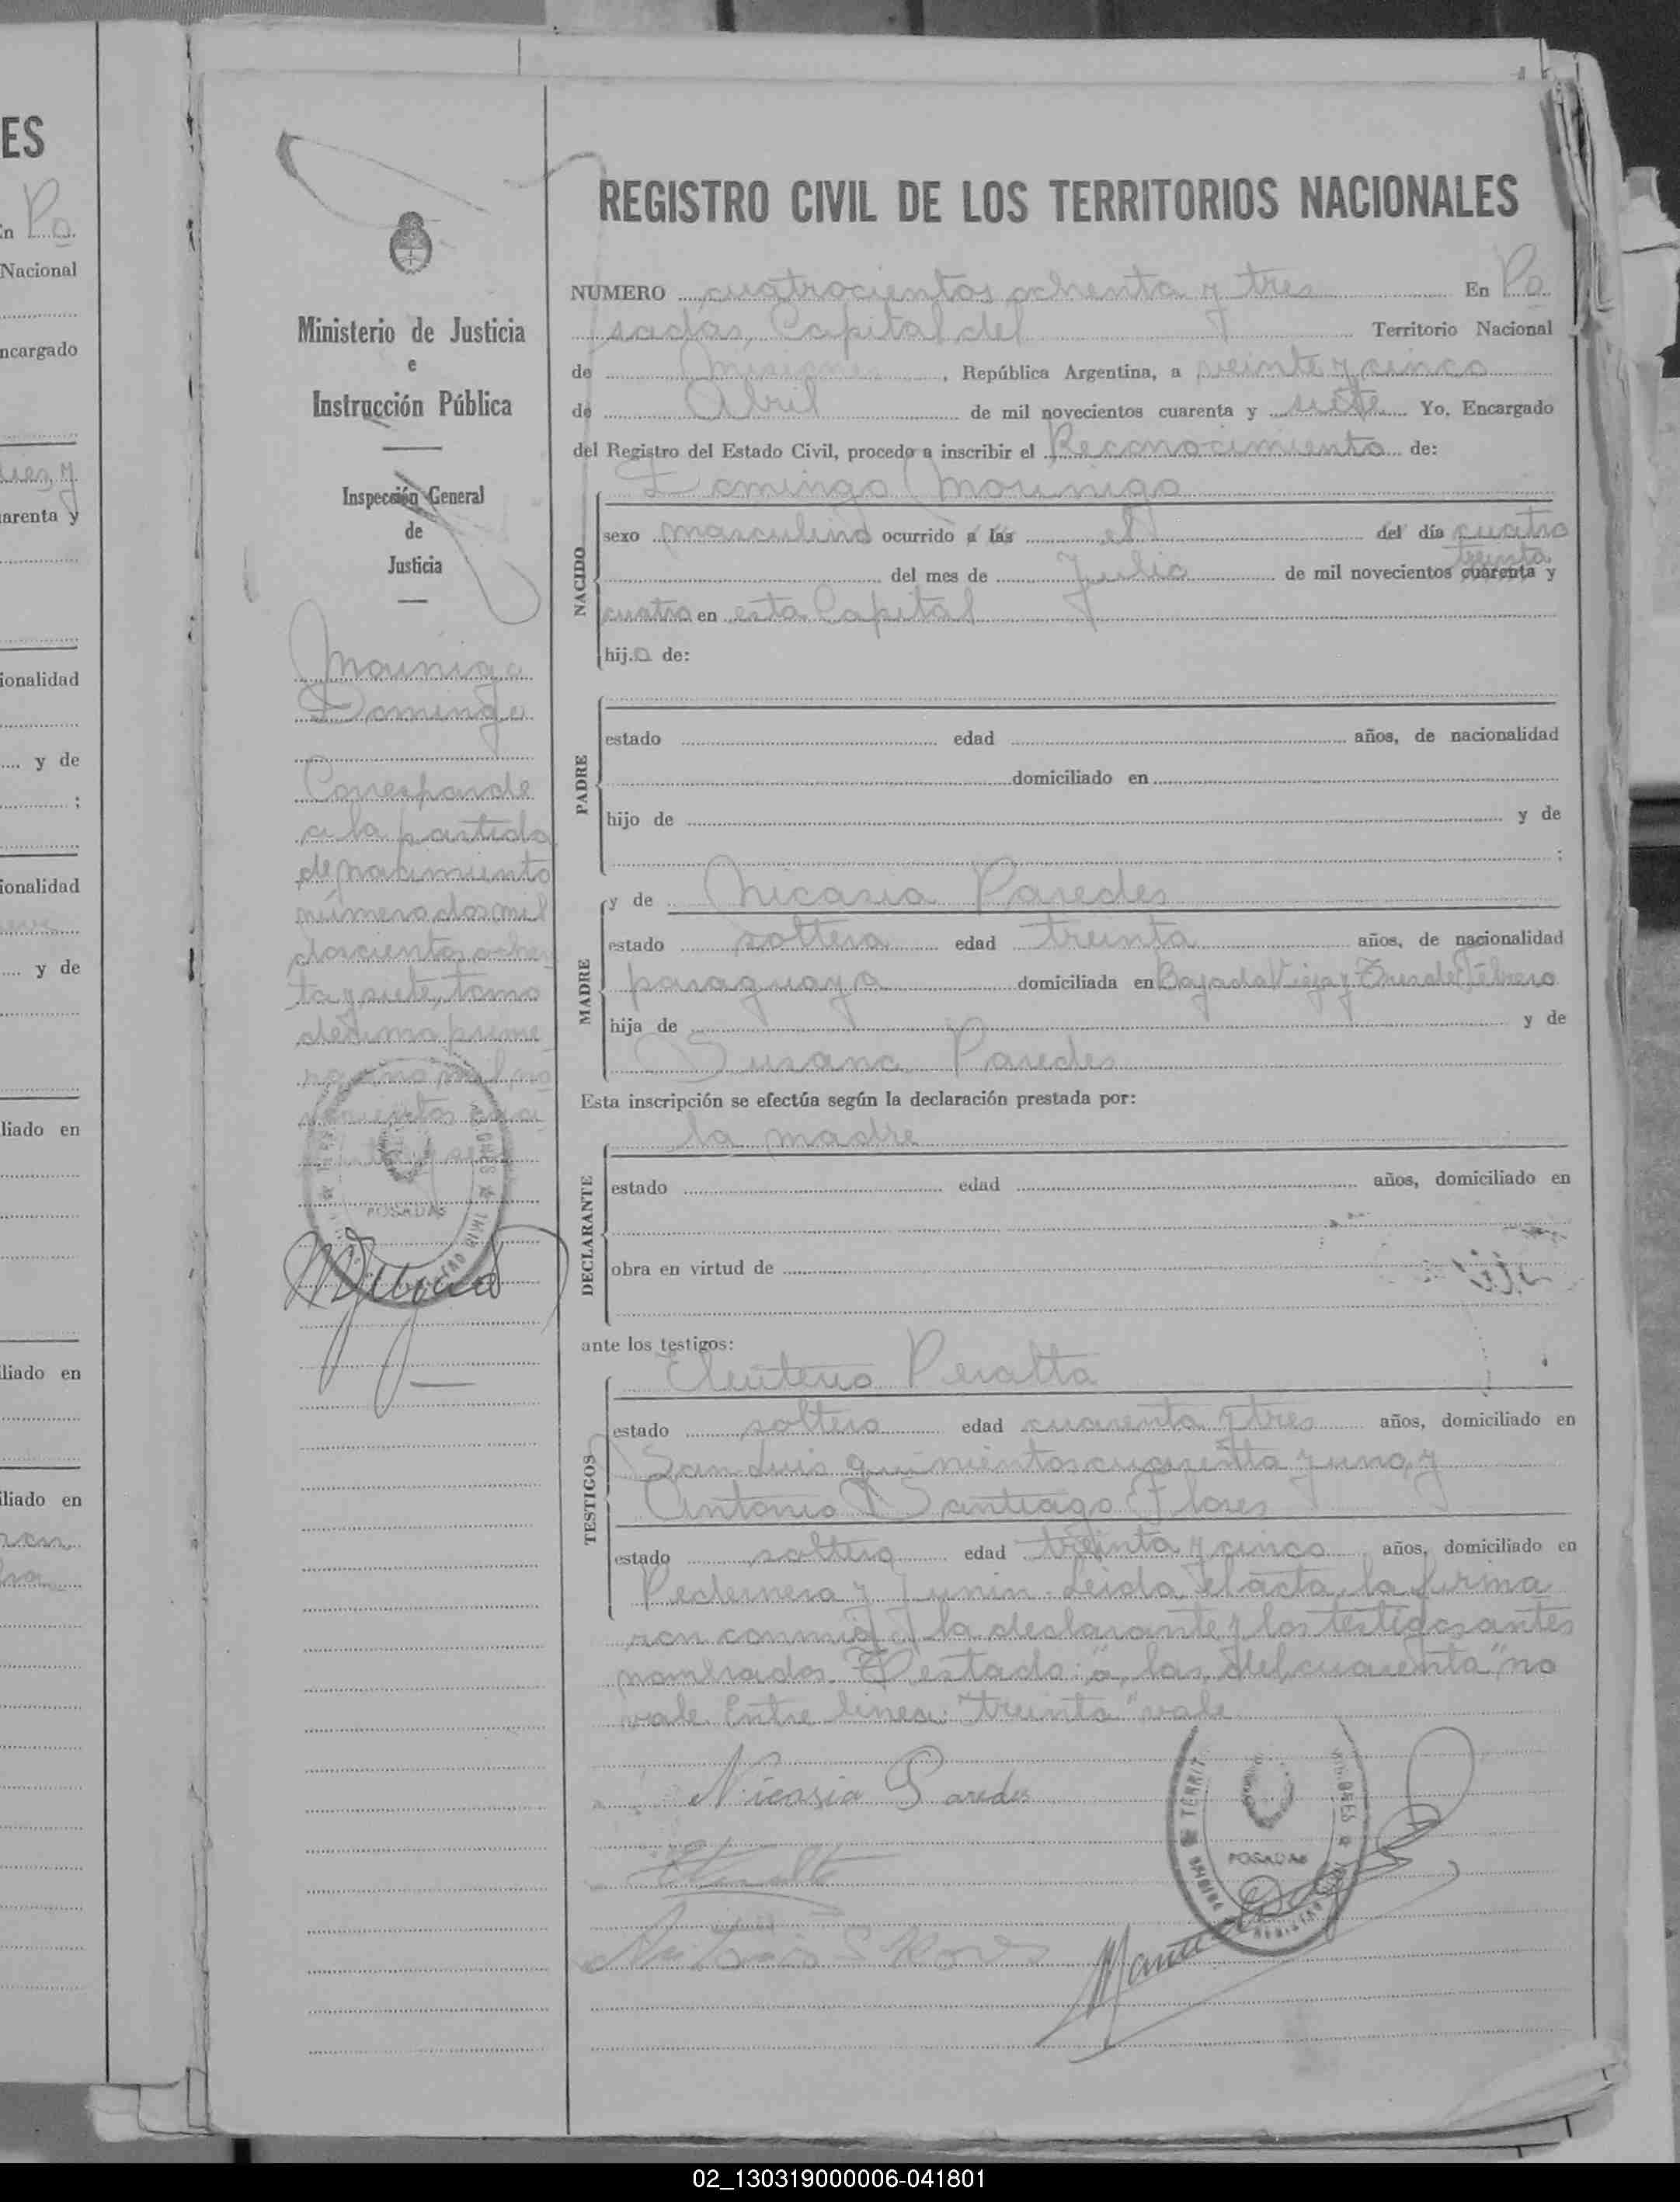 ES
En Po
Nacional
ncargado
arenta y
ionalidad
y de
;
ionalidad
y de
liado en
liado en
liado en
Ministerio de Justicia
e
Instrucción Pública
Inspección General
de
Justicia
Mourigo
Domingo
Corresponde
a la partida
de nacimiento
número dos mil
doscientos ochen
ta y siete, tomo
décimo prime
ro año mil no
vecientos
POSADAS
REGISTRO CIVIL DE LOS TERRITORIOS NACIONALES
NUMERO cuatrocientos ochenta y tres En Po
sadas, Capital del Territorio Nacional
de Misiones, República Argentina, a veinte y cinco
de Abril de mil novecientos cuarenta y siete Yo, Encargado
del Registro del Estado Civil, procedo a inscribir el Reconocimiento de:
Domingo Mourigo
NACIDO
sexo masculino ocurrido a las el del día cuatro
treinta
del mes de Julio de mil novecientos cuarenta y
cuatro en esta Capital
hijo de:
PADRE
estado edad años, de nacionalidad
domiciliado en
hijo de y de
;
MADRE
y de Nicasia Paredes
estado soltera edad treinta años, de nacionalidad
paraguaya domiciliada en Bajada Vieja y Tres de Febrero
hija de y de
Susana Paredes
Esta inscripción se efectúa según la declaración prestada por:
la madre
DECLARANTE
estado edad años, domiciliado en
obra en virtud de
ante los testigos:
TESTIGOS
Eleuterio Peralta
estado soltero edad cuarenta y tres años, domiciliado en
San Luis quinientos cuarenta y uno, y
Antonio Santiago Flores
estado soltero edad treinta y cinco años, domiciliado en
Pedernera y Junin. Leida el acta, la firma
ron conmigo la declarante y los testigos antes
nombrados. Testado: "a las, del cuarenta" no
vale. Entre linea: "treinta" vale
Nicasia Paredes
Antonio S Flores
POSADAS
02_130319000006-041801